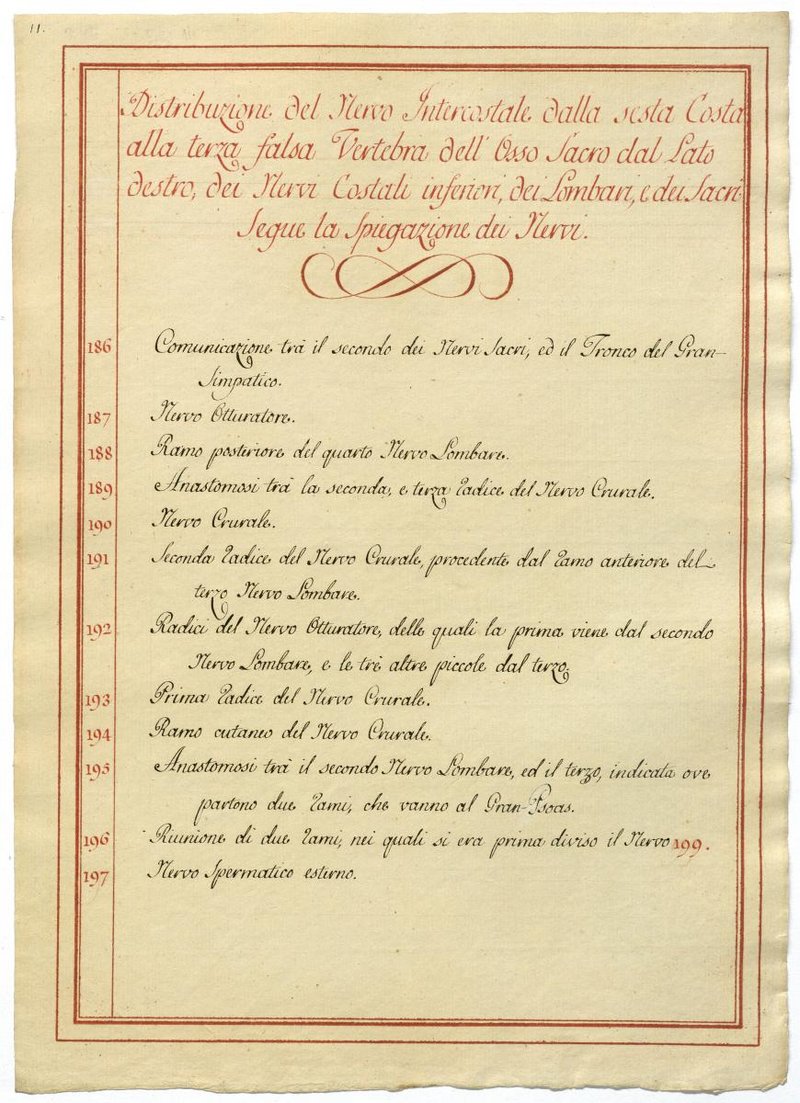 11.
Distribuzione del Nervo Intercostale dalla sesta Costa
alla terza falsa Vertebra dell' Osso Sacro dal Lato
destro, dei Nervi Costali inferiori, dei Lombari, e dei Sacri
Segue la Spiegazione dei Nervi.
186 Comunicazione trà il secondo dei Nervi Sacri, ed il Tronco del Gran-
Simpatico.
187 Nervo Otturatore.
188 Ramo posteriore del quarto Nervo Lombare.
189 Anastomosi trà la seconda, e terza Radice del Nervo Crurale.
190 Nervo Crurale.
191 Seconda Radice del Nervo Crurale, procedente dal Ramo anteriore del
terzo Nervo Lombare.
192 Radici del Nervo Otturatore, delle quali la prima viene dal secondo
Nervo Lombare, e le trè altre piccole dal terzo.
193 Prima Radice del Nervo Crurale.
194 Ramo cutaneo del Nervo Crurale.
195 Anastomosi trà il secondo Nervo Lombare, ed il terzo, indicata ove
partono due Rami, che vanno al Gran-Psoas.
196 Riunione di due Rami, nei quali si era prima diviso il Nervo 199.
197 Nervo Spermatico esterno.